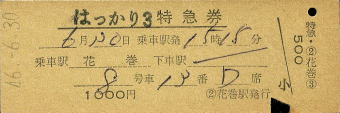 はつかり3 特急券
6月30日 乗車駅発15時15分
乗車駅 花巻 下車駅
8号車13番D席
1000円 ②花巻駅発行
46.-6.30
特急・②花巻③
500
小